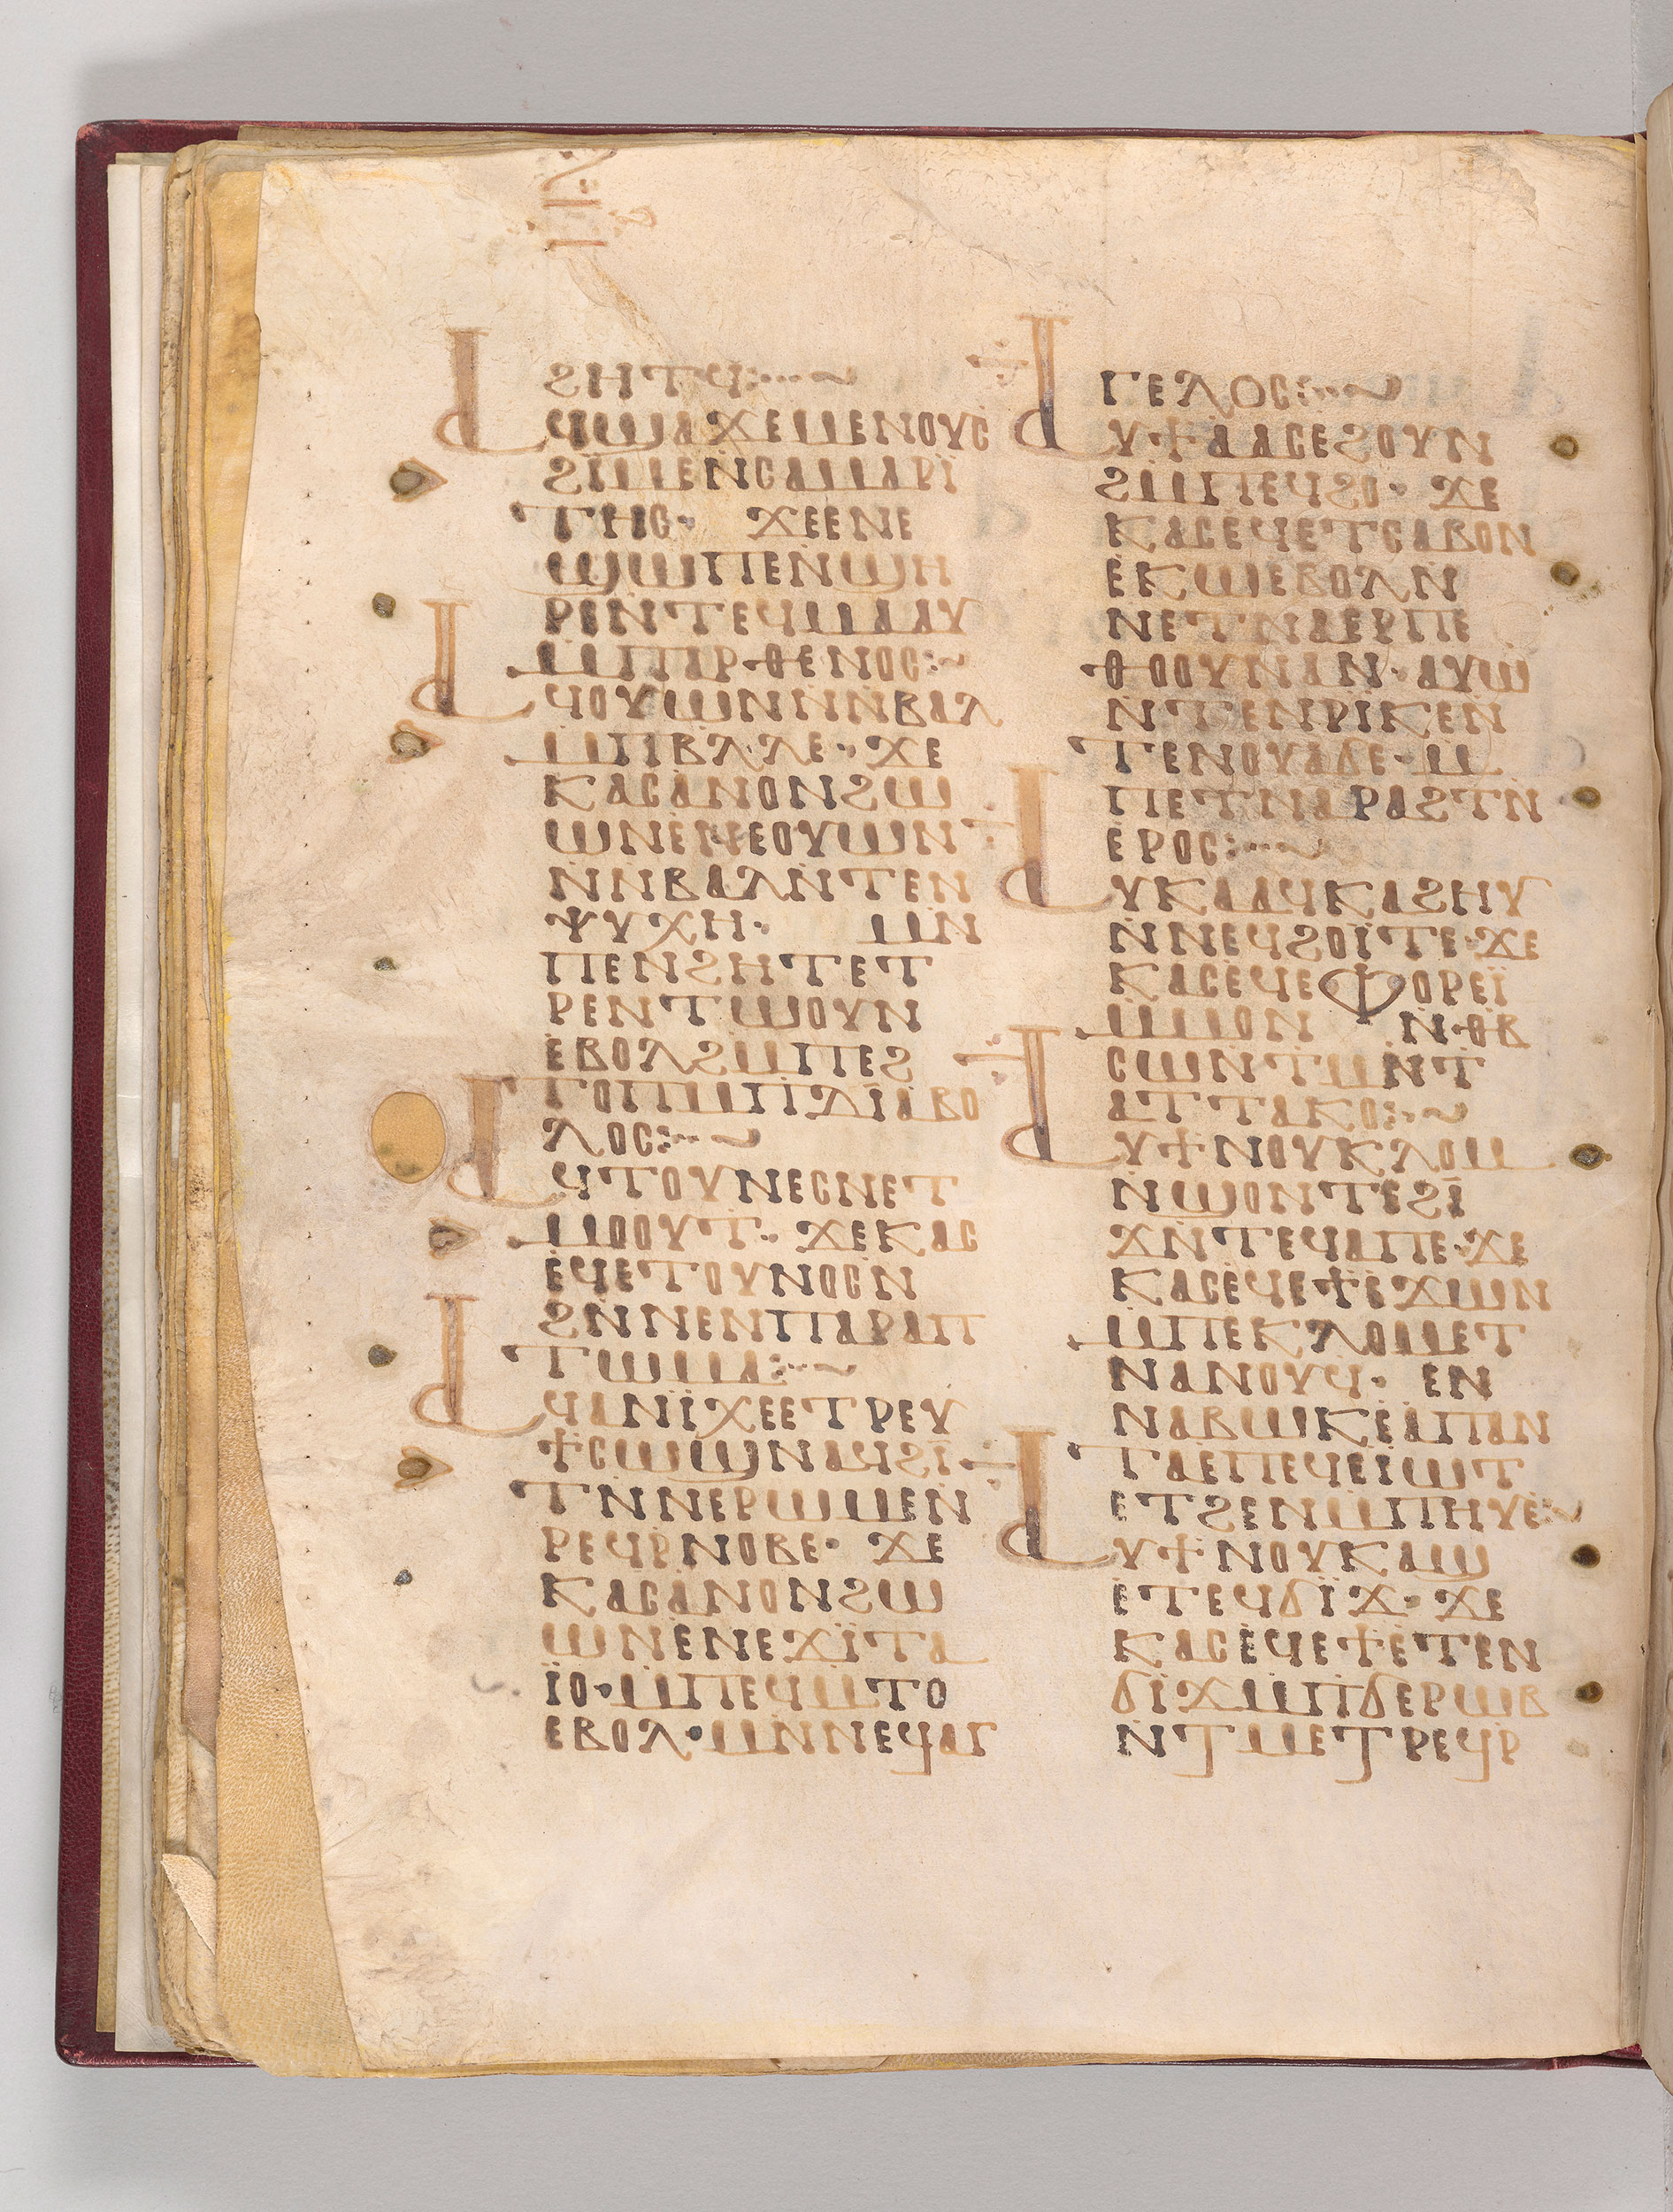 ϩⲏⲧϥ:··~
Ⲁϥϣⲁϫⲉⲙⲉⲛⲟⲩⲥ
ϩⲓ̈ⲙⲉⲛ̇ⲥⲁⲙⲁⲣⲓ̈
ⲧⲏⲥ· ϫⲉⲉⲛⲉ
ϣⲱⲡⲉⲛ̇ϣⲏ
ⲣⲉⲛ̇ⲧⲉϥⲙⲁⲁⲩ
ⲙ̇ⲡⲁⲣⲑⲉⲛⲟⲥ:~
Ⲁϥⲟⲩⲱⲛⲛ̇ⲛ̇ⲃⲁⲗ
ⲙ̇ⲡⲃⲗⲗⲉ· ϫⲉ
ⲕⲁⲥⲁ̇ⲛⲟⲛϩⲱ
ⲱⲛⲉ̇ⲛⲉⲉⲟⲩⲱⲛ
ⲛ̇ⲛ̇ⲃⲁⲗⲛ̇ⲧⲉⲛ
ⲯⲩⲭⲏ· ⲙⲛ̇
ⲡⲉⲛϩⲏⲧⲉⲧ
ⲣⲉⲛⲧⲱⲟⲩⲛ
ⲉ̇ⲃⲟⲗϩⲙ̇ⲡⲉϩ
ⲧⲟⲡⲙ̇ⲡⲇⲓ̈ⲁⲃⲟ
ⲗⲟⲥ:··~
Ⲁϥⲧⲟⲩⲛⲉⲥⲛⲉⲧ
ⲙⲟⲟⲩⲧ· ϫⲉⲕⲁⲥ
ⲉ̇ϥⲉⲧⲟⲩⲛⲟⲥⲛ̇
ϩⲛ̇ⲛⲉⲛⲡⲁⲣⲁⲡ
ⲧⲱⲙⲁ:··~
Ⲁϥⲁⲛⲓ̈ⲭⲉⲉⲧⲣⲉⲩ
ϯⲥⲱϣⲛⲁϥϩⲓ̈
ⲧⲛ̇ⲛⲉⲣⲱⲙⲉⲛ̇
ⲣⲉϥⲣ̇ⲛⲟⲃⲉ· ϫⲉ
ⲕⲁⲥⲁ̇ⲛⲟⲛϩⲱ
ⲱⲛⲉ̇ⲛⲉϫⲓ̈ⲧⲁ
ⲓ̈ⲟ·ⲙ̇ⲡⲉϥⲙ̇ⲧⲟ
ⲉⲃⲟⲗ·ⲙⲛ̇ⲛⲉϥⲁⲅ
ⲅⲉⲗⲟⲥ:··~
Ⲁⲩϯⲁⲁⲥⲉϩⲟⲩⲛ
ϩⲙ̇ⲡⲉϥϩⲟ· ϫⲉ
ⲕⲁⲥⲉ̇ϥⲉⲧⲥⲁⲃⲟⲛ
ⲉ̇ⲕⲱⲉⲃⲟⲗⲛ̇
ⲛⲉⲧⲛⲁⲉⲣⲡⲉ
ⲑⲟⲟⲩⲛⲁⲛ·ⲁⲩⲱ
ⲛ̇ⲧⲉⲛⲣⲓ̇ⲕⲉⲛ̇
ⲧⲉⲛⲟⲩⲁϭⲉ·ⲙ̇
ⲡⲉⲧⲛⲁⲣⲁϩⲧⲛ̇
ⲉⲣⲟⲥ:··~
Ⲁⲩⲕⲁⲁϥⲕⲁϩⲏⲩ
ⲛ̇ⲛⲉϥϩⲟⲓ̈ⲧⲉ·ϫⲉ
ⲕⲁⲥⲉ̇ϥⲉⲫⲟⲣⲉⲓ̈
ⲙ̇ⲙⲟⲛ ⲛ̇ⲑⲃ
ⲥⲱⲛ̇ⲧⲙⲛ̇ⲧ
ⲁⲧⲧⲁⲕⲟ:··~
Ⲁⲩϯⲛⲟⲩⲕⲗⲟⲙ
ⲛ̇ϣⲟⲛⲧⲉϩⲓ̈
ϫⲛ̇ⲧⲉϥⲁⲡⲉ·ϫⲉ
ⲕⲁⲥⲉ̇ϥⲉϯⲉ̇ϫⲱⲛ
ⲙ̇ⲡⲉⲕⲗⲟⲙⲉⲧ
ⲛⲁⲛⲟⲩϥ· ⲉⲛ
ⲛⲁⲃⲱⲕⲉ̇ⲁⲡⲁⲛ
ⲧⲁⲉ̇ⲡⲉϥⲉⲓ̇ⲱⲧ
ⲉⲧϩⲉⲛⲙ̇ⲡⲏⲩⲉ̇:~
Ⲁⲩϯⲛⲟⲩⲕⲁϣ
ⲉ̇ⲧⲉϥϭⲓ̈ϫ· ϫⲉ
ⲕⲁⲥⲉ̇ϥⲉϯⲉ̇ⲧⲉⲛ
ϭⲓ̈ϫⲙ̇ⲡϭⲉⲣⲱⲃ
ⲛ̇ⲧⲙⲉⲧⲣⲉϥⲣ̇